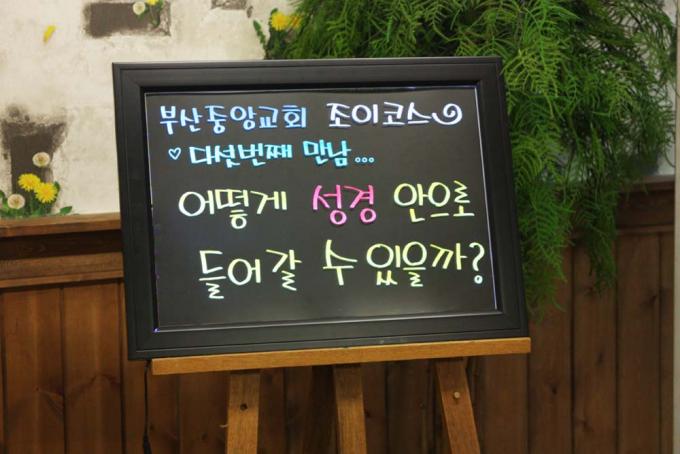 부산중앙교회 조이코스
♡ 다섯번째 만남...
어떻게 성경 안으로
들어갈 수 있을까?